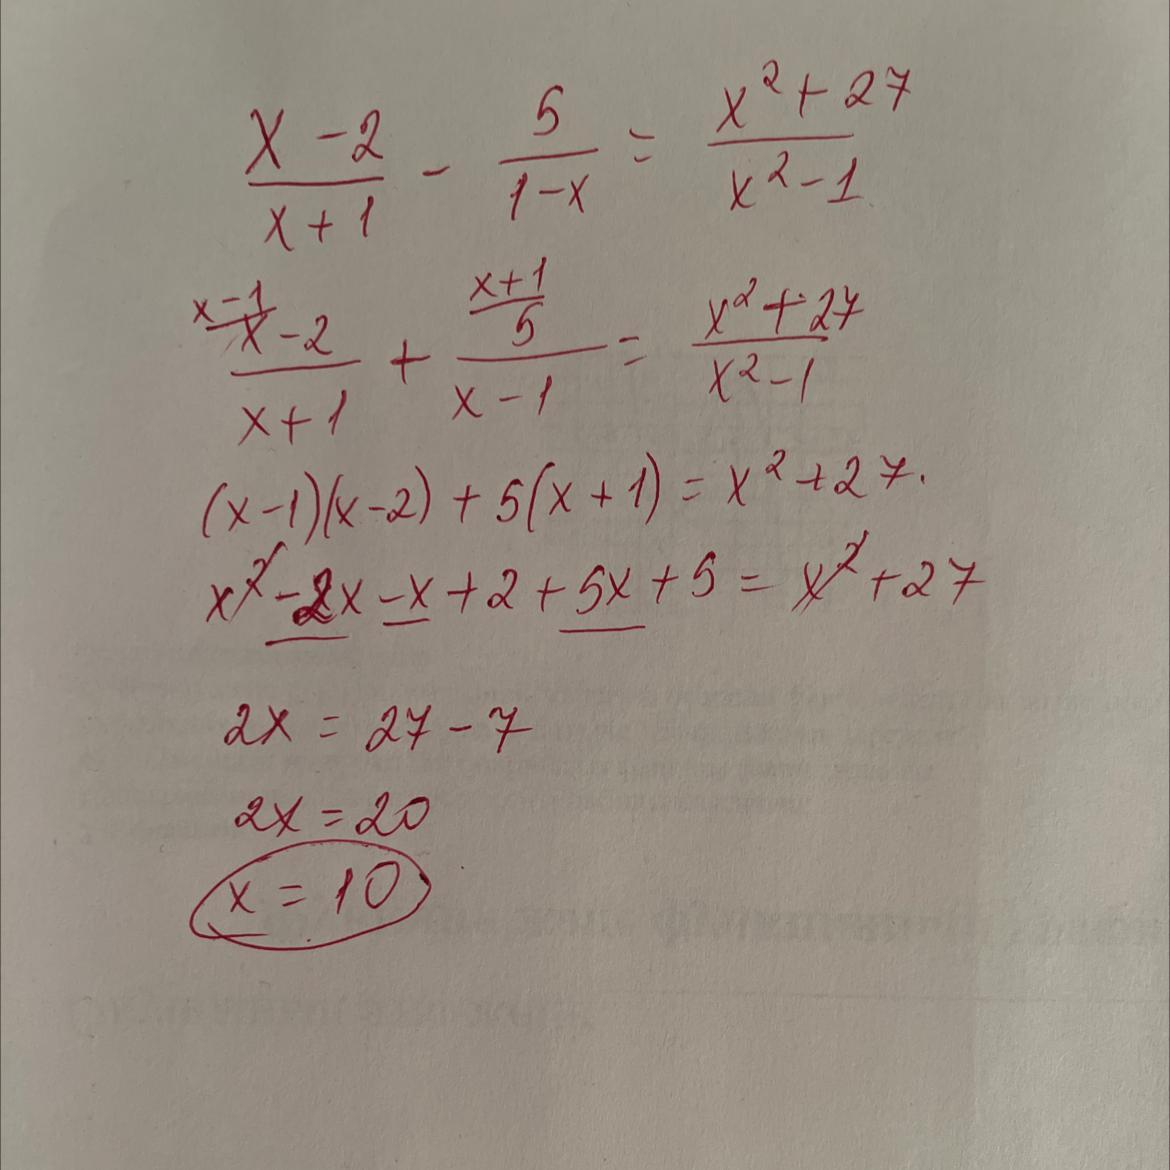 (x-2)/(x+1) - 5/(1-x) = (x²+27)/(x²-1)
x-1 x+1
(x-2)/(x+1) + 5/(x-1) = (x²+27)/(x²-1)
(x-1)(x-2) + 5(x+1) = x²+27.
x² - 2x - x + 2 + 5x + 5 = x² + 27
2x = 27 - 7
2x = 20
x = 10